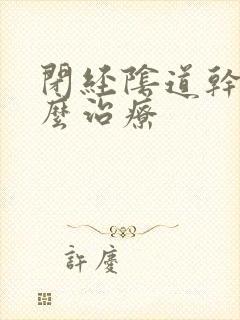 閉經陰道幹
麼治療
許慶